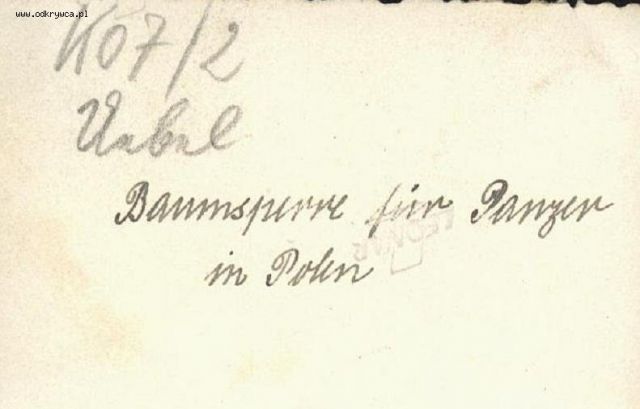 www.odkrywca.pl
K07/2
Baumsperre für Panzer
LEONAR
in Polen